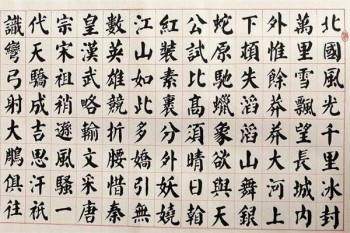 北國風光千里冰封
萬里雪飄望長城內
外惟餘莽莽大河上
下頓失滔滔山舞銀
蛇原馳蠟象欲與天
公試比高須晴日看
紅裝素裹分外妖嬈
江山如此多嬌引無
數英雄競折腰惜秦
皇漢武略輸文采唐
宗宋祖稍遜風騷一
代天驕成吉思汗祇
識彎弓射大鵰俱往